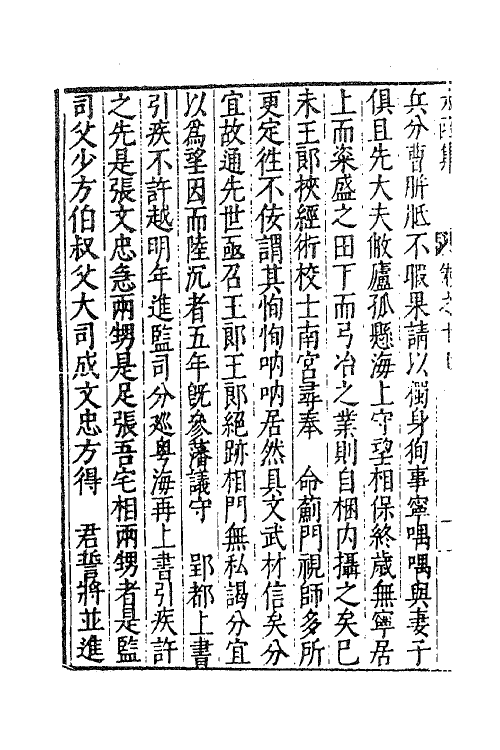 兵分曹胼胝不暇果請以獨身狥事寧喁喁與妻子
俱且先大夫敝廬孤懸海上守望相保終歲無寧居
上而粢盛之田下而弓冶之業則自梱内攝之矣巳
未王郎挾經術校士南宮尋奉　命薊門視師多所
更定徃不佞謂其恂恂吶吶居然具文武材信矣分
宜故通先世亟召王郎王郎絕跡相門無私謁分宜
以爲望因而陸沉者五年旣參藩議守　郢都上書
引疾不許越明年進監司分廵粤海再上書引疾許
之先是張文忠急兩甥是足張吾宅相兩甥者是監
司父少方伯叔父大司成文忠方得　君誓將並進